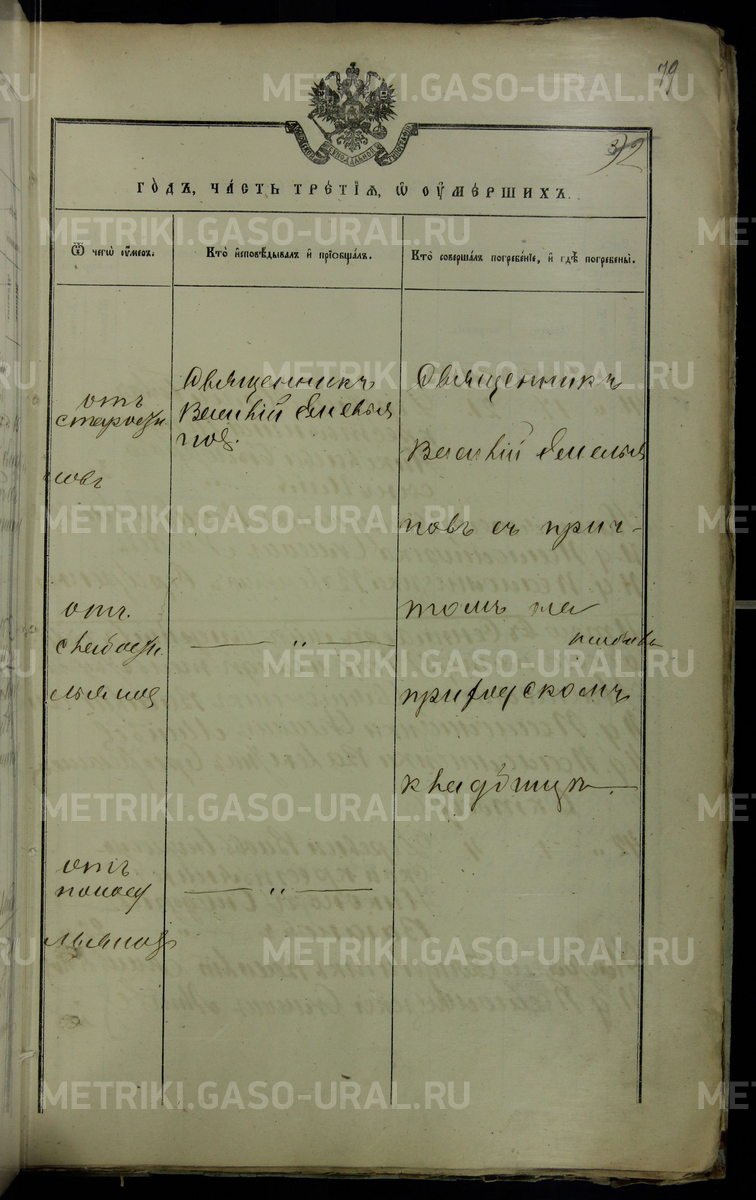 79
32
годъ, часть третїѧ, ѡ оумершихъ.
Ѿ чегѡ оумеръ.
Кто исповѣдывалъ и прїобщалъ.
Кто совершалъ погребенїе, и гдѣ погребены.
отъ
Священникъ
Василій Емелья
нов.
Священникъ
Василій Емелья
новъ съ прич-
томъ на
приходскомъ
кладбищѣ.
отъ
слабости
— „ —
отъ
поноса
— „ —
METRIKI.GASO-URAL.RU